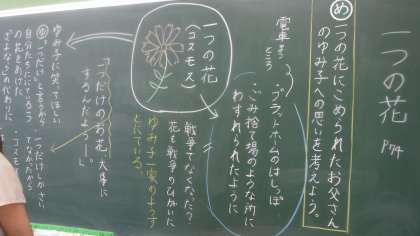 一つの花 P74
め
一つの花にこめられたお父さん
のゆみ子への思いを考えよう。
電車を
プラットホームのはしっぽ
ごみ捨て場のような所に
わすれられたように
一つの花
(コスモス)
戦争でなくなった?
花も戦争のひがいに
ゆみ子一家のようす
とにている。
「一つだけのお花、大事に
するんだよう―。」
ゆみ子に笑ってほしい
ゆ
一つだけと言うから
自分たちにたいせつ
の花をあげた。
一つだけしかさい
てなかったから
コスモ
さよならの代わりに